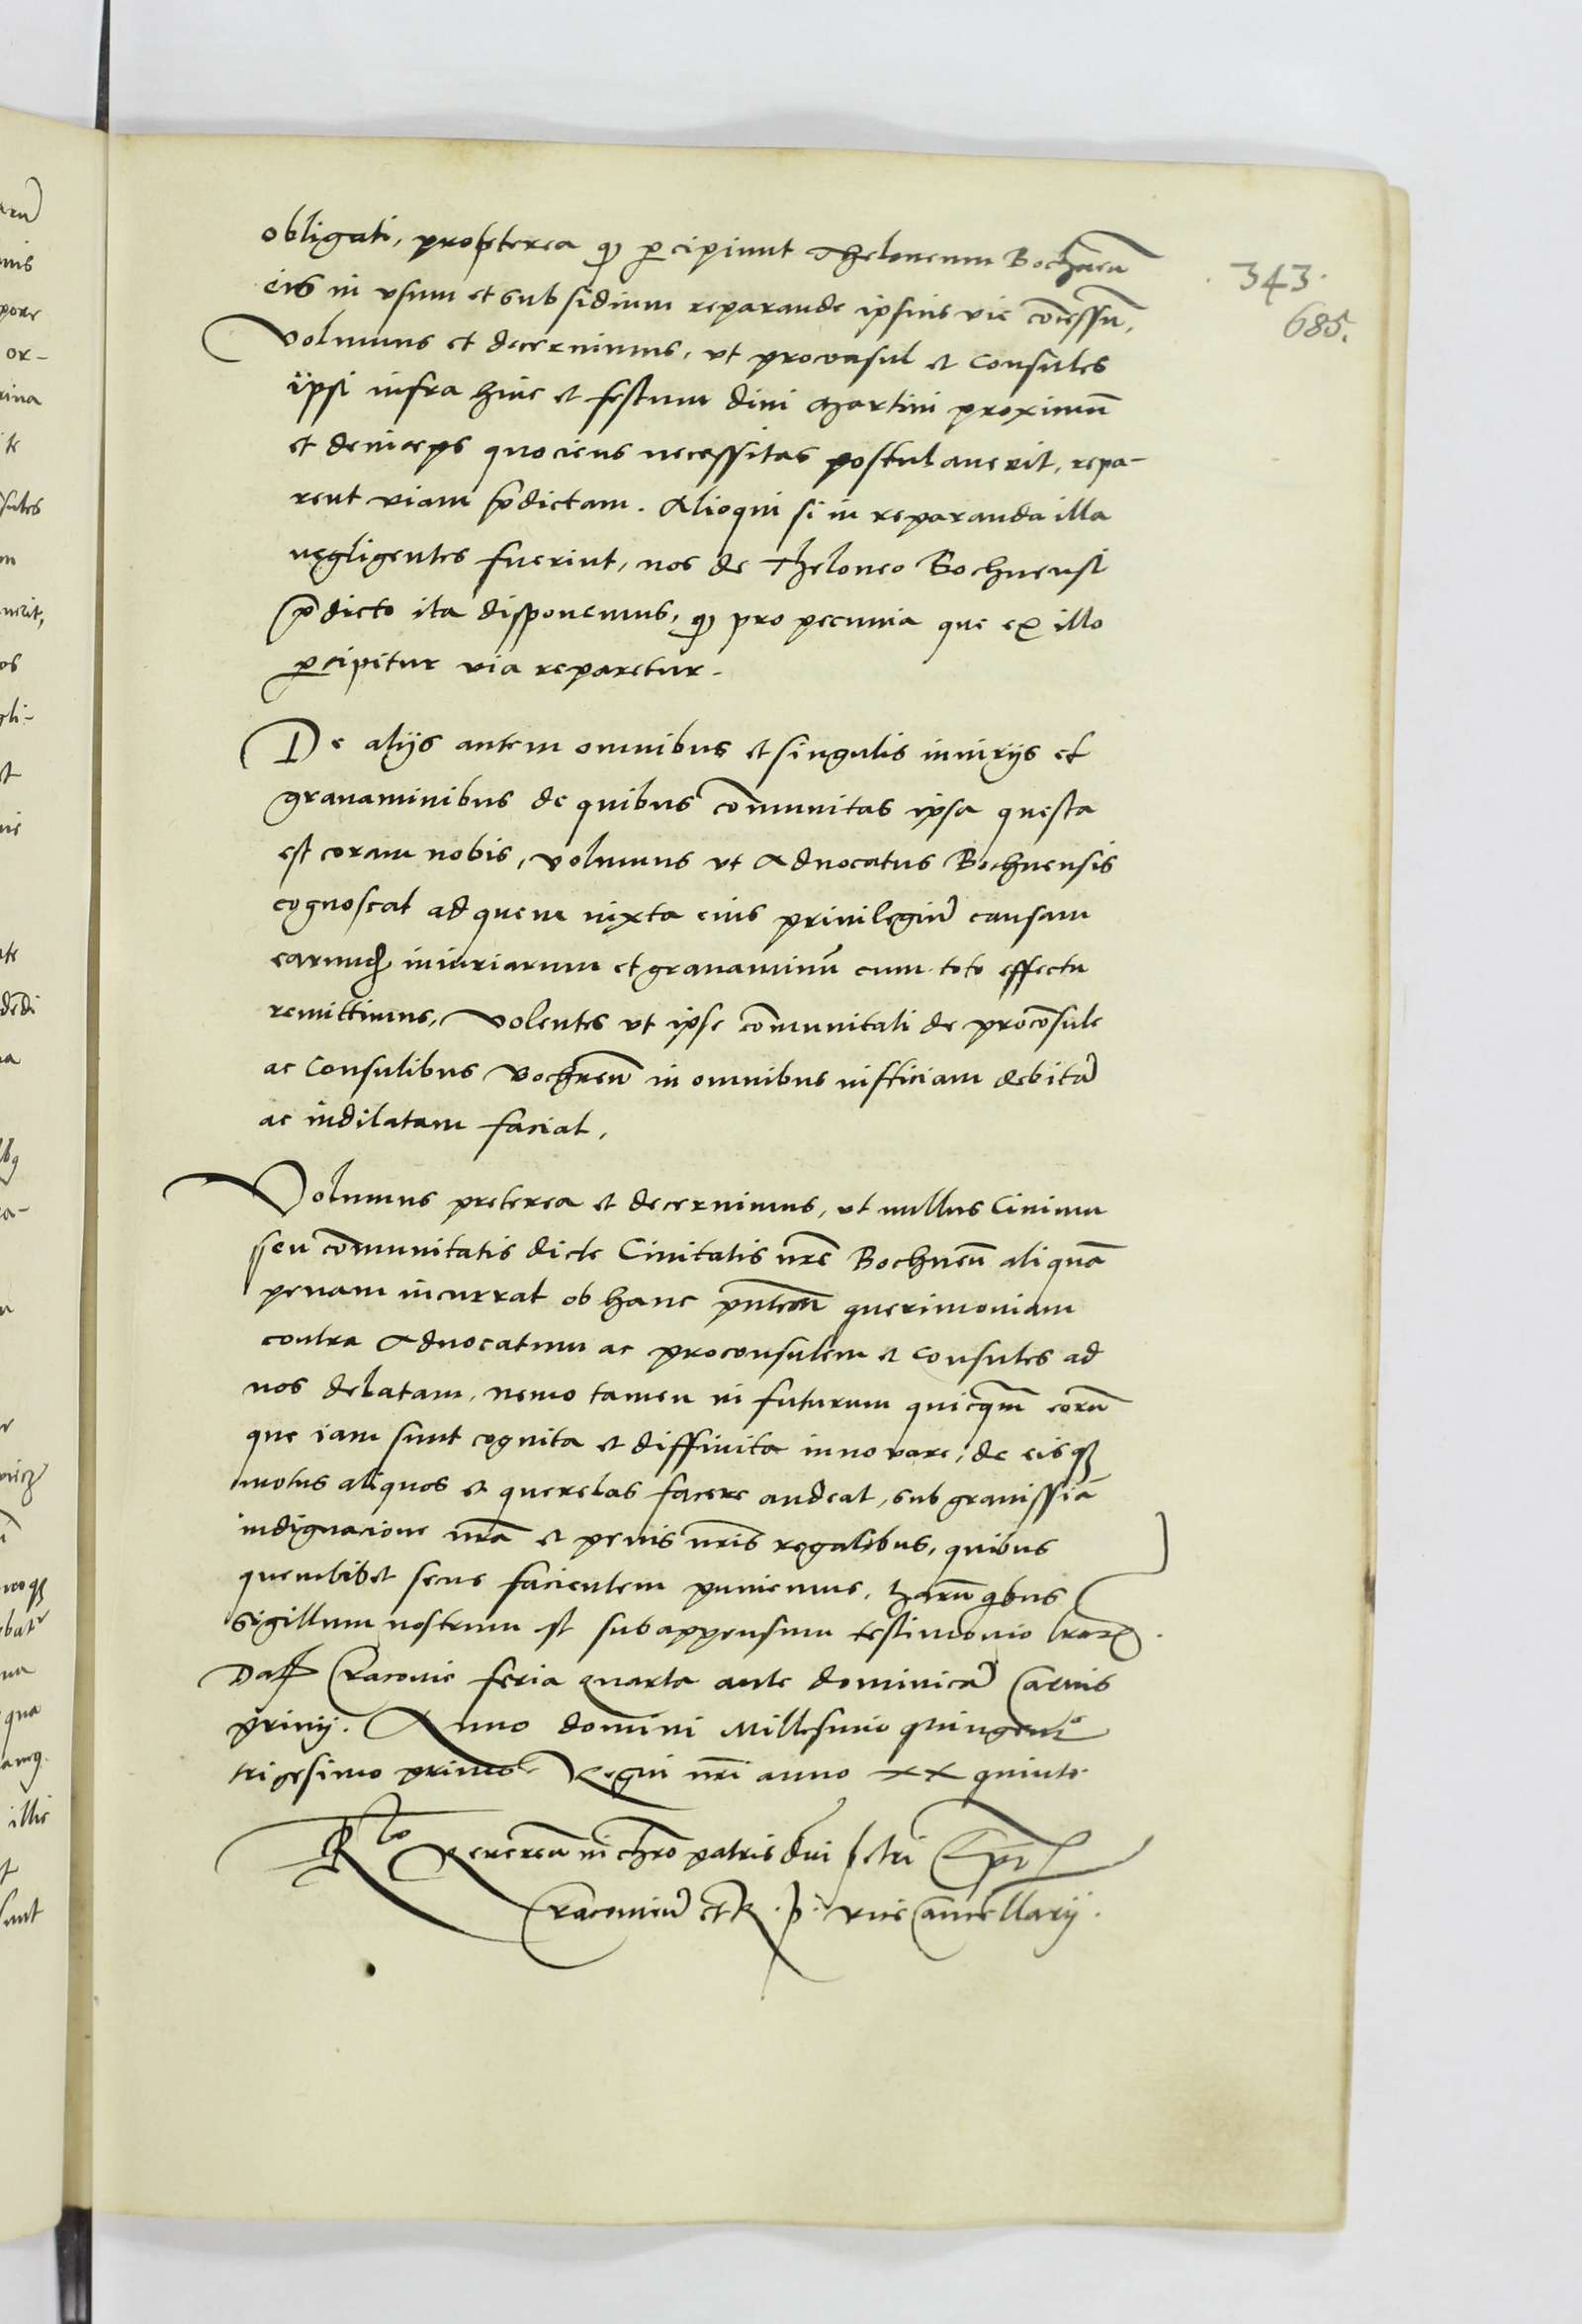 obligati, propterea qꝫ p̲cipiunt Theloneum Bochnen̄
eis in vsum et subsidium reparande ipsius vie cōcessūm,
Volumus et decernimus, vt proconsul et Consules
ipsi infra hinc et festum diui Martini proximū
et deinceps quociens necessitas postulauerit, repa-
rent viam p̄dictam. Alioqui si in reparanda illa
negligentes fuerint, nos de Theloneo Bochnensi
p̄dicto ita disponemus, qꝫ pro pecunia que ex illo
p̲cipitur via reparetur.
De alijs autem omnibus et singulis iniurijs et
grauaminibus de quibus cōmunitas ipsa questa
est coram nobis, volumus vt Aduocatus Bochnensis
cognoscat ad quem iuxta eius priuilegiū causam
earundꝫ iniuriarum et grauaminū cum toto effectu
remittimus, Volentes vt ipse cōmunitati de procōsule
ac Consulibus Bochnen̄ in omnibus iusticiam debitā
ac indilatam faciat,
Volumus preterea et decernimus, vt nullus Ciuium
seu cōmunitatis dicte Ciuitatis nr̄e Bochnen̄ aliquā
penam incurrat ob hanc pn̄tem querimoniam
contra Aduocatum ac proconsulem et Consules ad
nos delatam, nemo tamen in futurum quicq̄m eorū
que iam sunt cognita et diffinita innouare, de eisqꝫ
motus aliquos et querelas facere audeat, sub grauissīa
indignacione nr̄a et penis nr̄is regalibus, quibus
quemlibet secus facientem puniemus, Harū qbus
sigillum nostrum est subappensum testimonio lrarꝫ.
Datt̄ Cracouie feria quarta ante dominicā Carnis
priuij. Anno domini Millesimo quingentº
trigesimo primo Regni nr̄i anno XX quinto
R̄ᵗᵒ Reueren̄ in chr̄o patris dn̄i Petri Ep̄i
Cracouien̄ et R. P. vice Cancellarij.
343.
685.